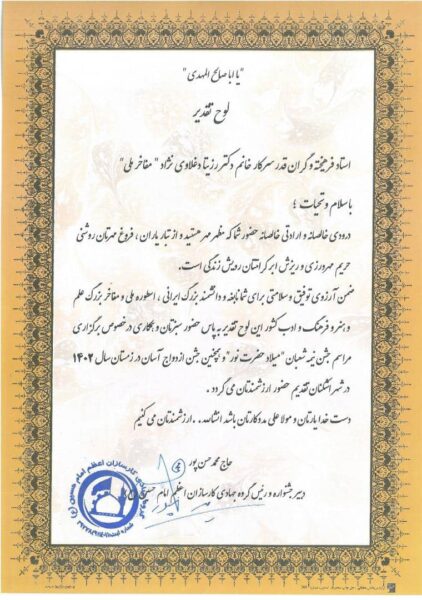 "یا اباصالح المهدی"
لوح تقدیر
استاد فرهیخته و گران قدر سرکار خانم دکتر رزیتا دغلاوی نژاد "مفاخر ملی"
با سلام و تحیات ؛
درودی خالصانه و ارادتی خالصانه حضور شما که مظهر مهر هستید و از تبار یاران ، فروغ مهرتان روشنی
حریم مهرورزی و ریزش ابر کرامتتان رویش زندگی است.
ضمن آرزوی توفیق و سلامتی برای شما نابغه و دانشمند بزرگ ایرانی ، اسطوره ملی و مفاخر بزرگ علم
و هنر و فرهنگ و ادب کشور این لوح تقدیر به پاس حضور سبزتان و همکاری در خصوص برگزاری
مراسم جشن نیمه شعبان "میلاد حضرت نور" و همچنین جشن ازدواج آسان در زمستان سال ۱۴۰۲
در شهر اشکنان تقدیم حضور ارزشمندتان می گردد .
دست خدا یارتان و مولا علی مددکارتان باشد انشاالله . . . ارزشمندتان می کنیم
حاج محمد حسن پور
دبیر جشنواره و رئیس گروه جهادی کارسازان اعظم امام حسین
گروه جهادی کارسازان اعظم امام حسین (ع)